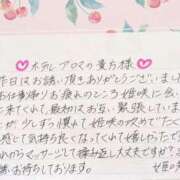 ♡ホテルアロマの貴方様♡
昨日はお誘い頂きありがとうございました
お仕事帰りお疲れのところ姫咲に会い
に来てくれて、最初はお互い緊張していました
が、少しずつ慣れて姫咲の攻めでたくさん
感じて気持ち良くなってくれて嬉しかったです
れからマッサージして揉み返し大丈夫ですか？
お待ちしております。 姫咲